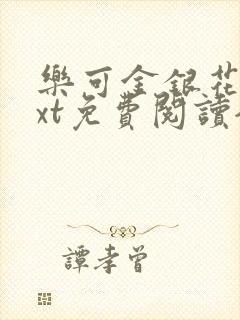 樂可金銀花
xt免費閱讀
譚孝曾